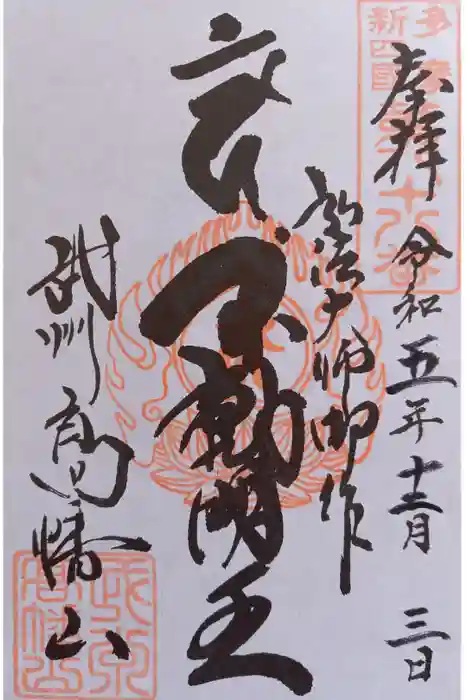 多摩
新四国
奉拝 令和五年十二月三日
弘法大師御作
不動明王
武州 高幡山